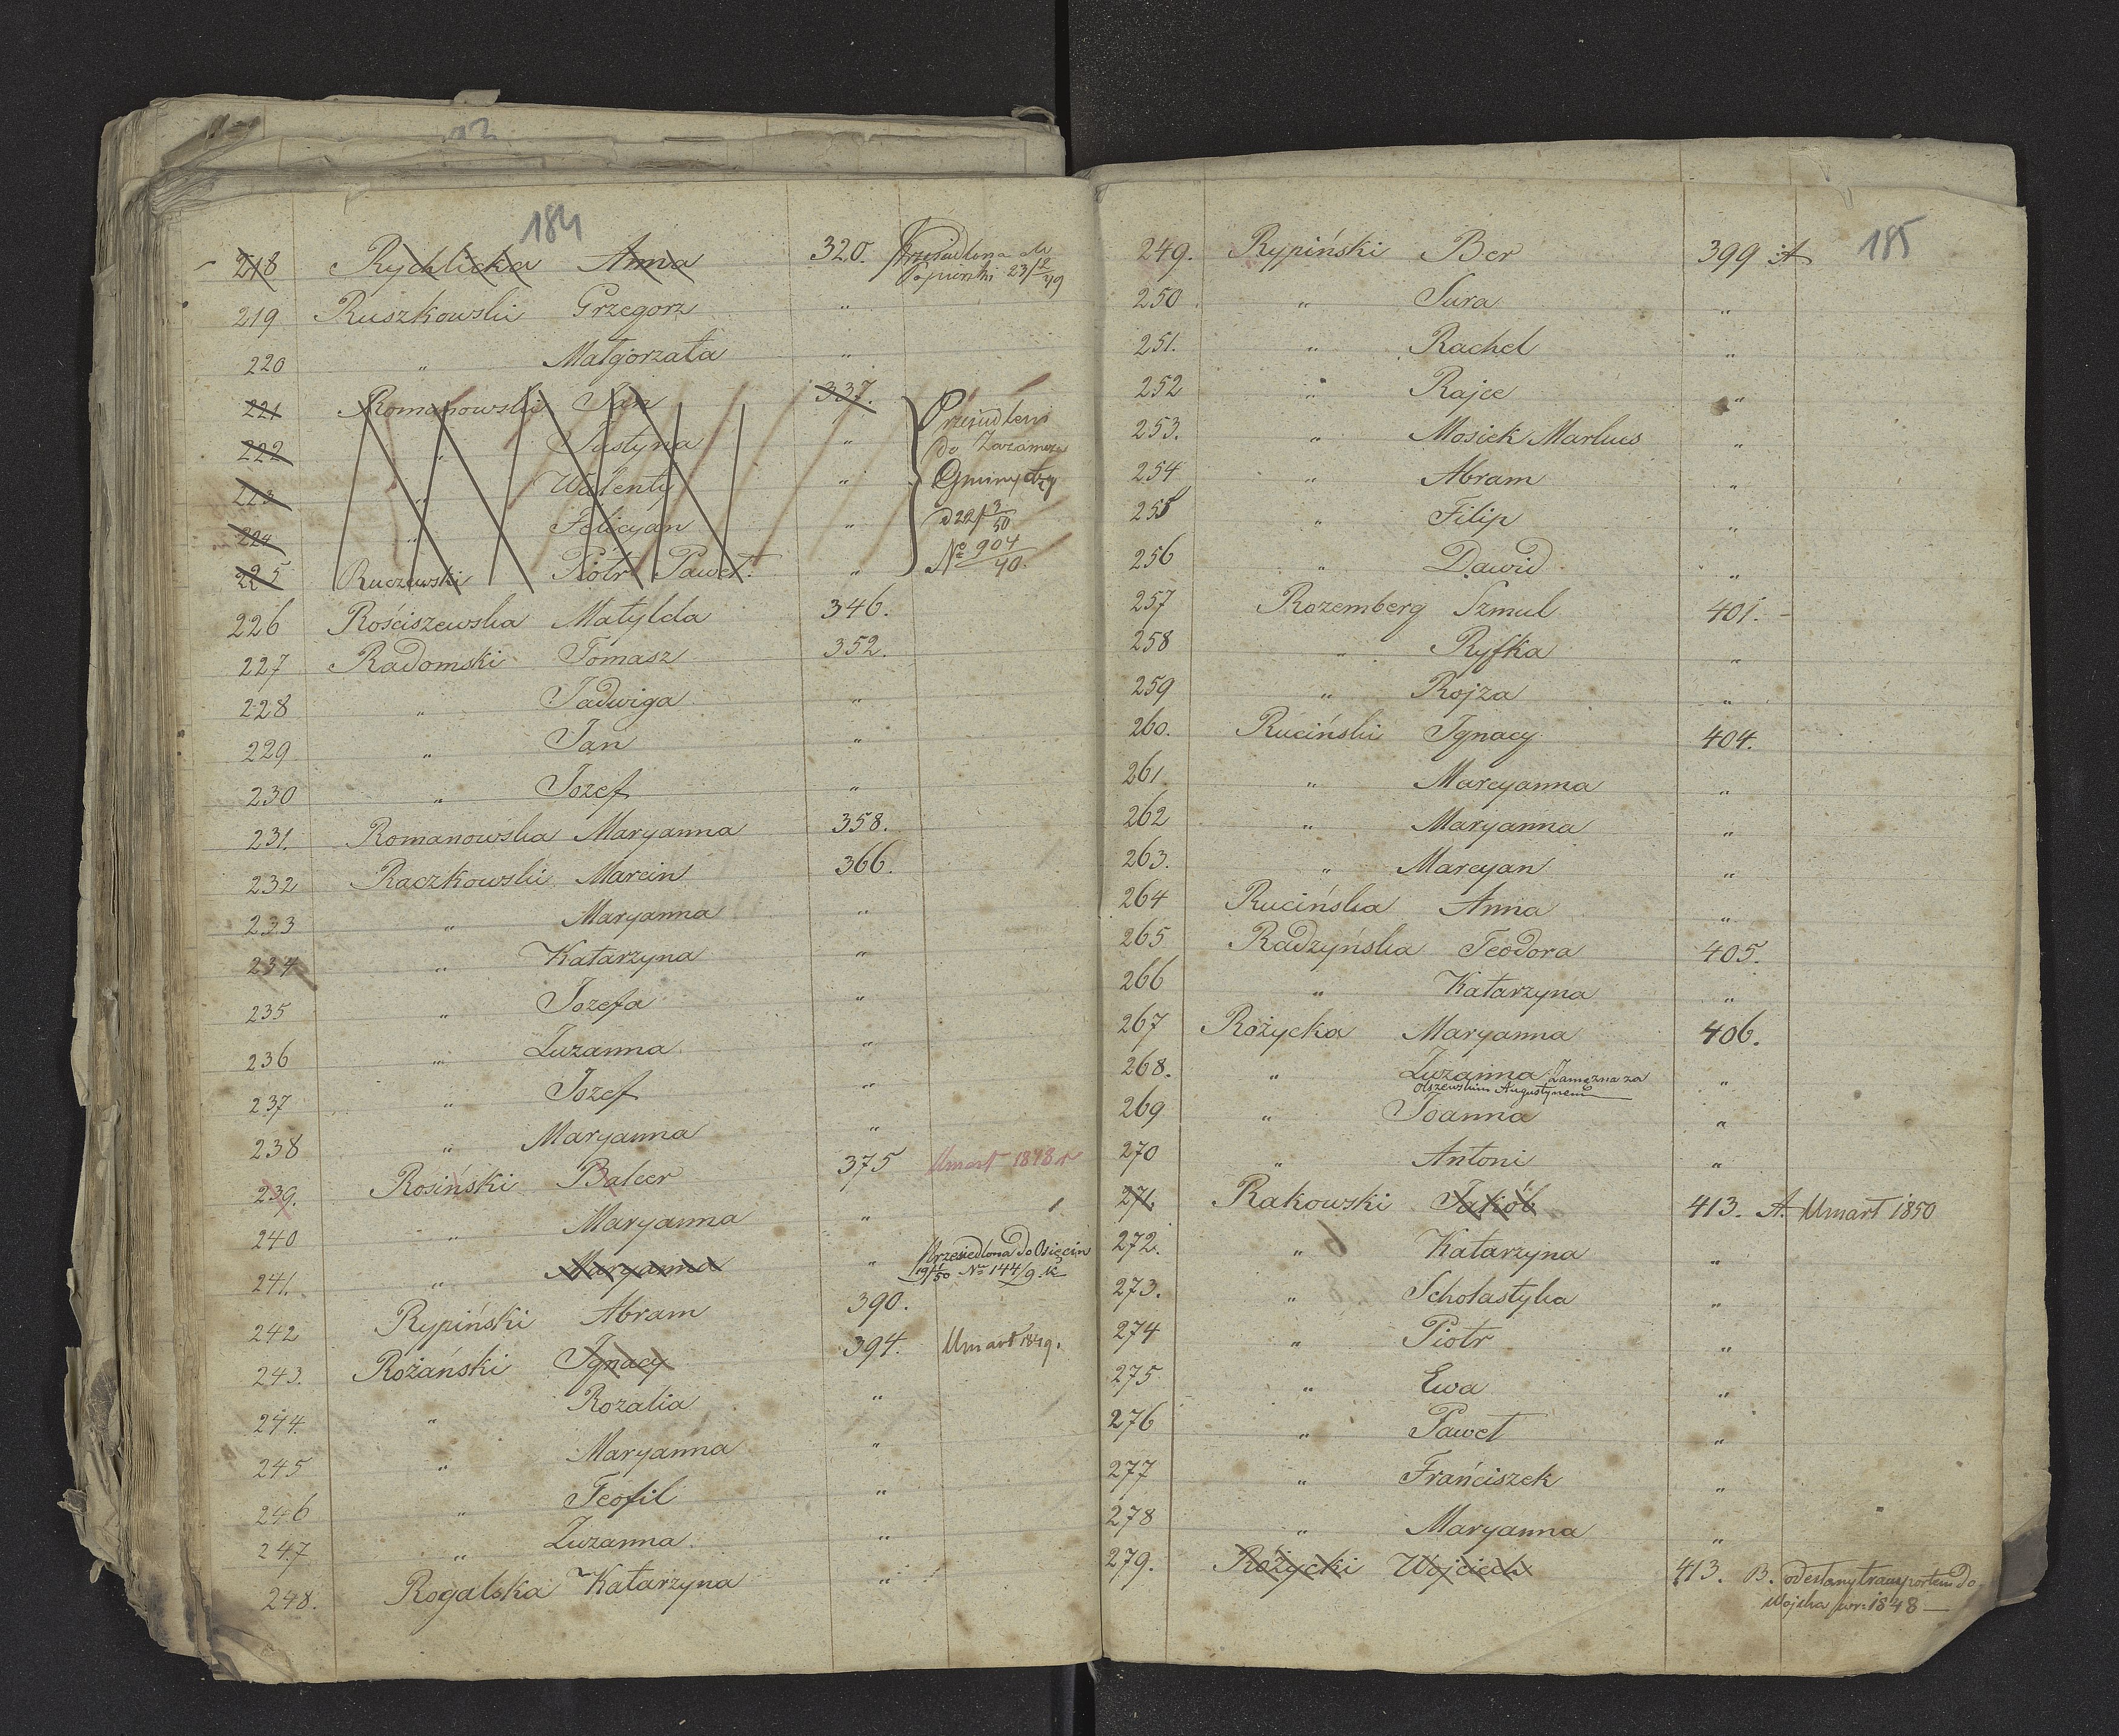 184
218 Rychlicka Anna 320. Przesiedlona
23/12 49
219 Ruszkowski Grzegorz "
220 " Małgorzata "
221 Romanowski Jan 337. Przesiedleni
222 " Justyna " do
223 " Walenty " Gminy
224 " Felicyan " d 22/3 50
225 Ruczewski Piotr Paweł. " № 904/40.
226 Rościszewska Matylda 346.
227 Radomski Tomasz 352.
228 " Jadwiga "
229 " Jan "
230 " Jozef "
231. Romanowska Maryanna 358.
232 Raczkowski Marcin 366.
233 " Maryanna "
234 " Katarzyna "
235 " Jozefa "
236 " Zuzanna "
237 " Jozef "
238 " Maryanna "
239. Rosiński Balcer 375 Umarł 1848 r
240 " Maryanna "
241. " Maryanna " Przesiedlona do Osięcin
19/1 50 № 144/9
242 Rypiński Abram 390.
243. Rożański Ignacy 394. Umarł 1849.
244. " Rozalia "
245 " Maryanna "
246 " Teofil "
247 " Zuzanna "
248. Rogalska Katarzyna "
185
249. Rypiński Ber 399 A
250 " Sura "
251. " Rachel "
252 " Rajce "
253. " Mosiek Markus "
254 " Abram "
255 " Filip "
256 " Dawid "
257 Rozemberg Szmul 401.
258 " Ryfka "
259 " Rojza "
260. Ruciński Ignacy 404.
261 " Marcyanna "
262 " Maryanna "
263. " Marcyan "
264 Rucińska Anna "
265 Radzyńska Teodora 405.
266 " Katarzyna "
267 Rożycka Maryanna 406.
268. " Zuzanna Zamężna za "
Olszewskim Augustynem
269 " Joanna "
270 " Antoni "
271. Rakowski Jakób 413. A. Umarł 1850
272. " Katarzyna "
273. " Scholastyka "
274 " Piotr "
275 " Ewa "
276 " Paweł "
277 " Frańciszek "
278 " Maryanna "
279. Rożycki Wojciech 413. B. odesłany transportem do
Wojska w r: 1848